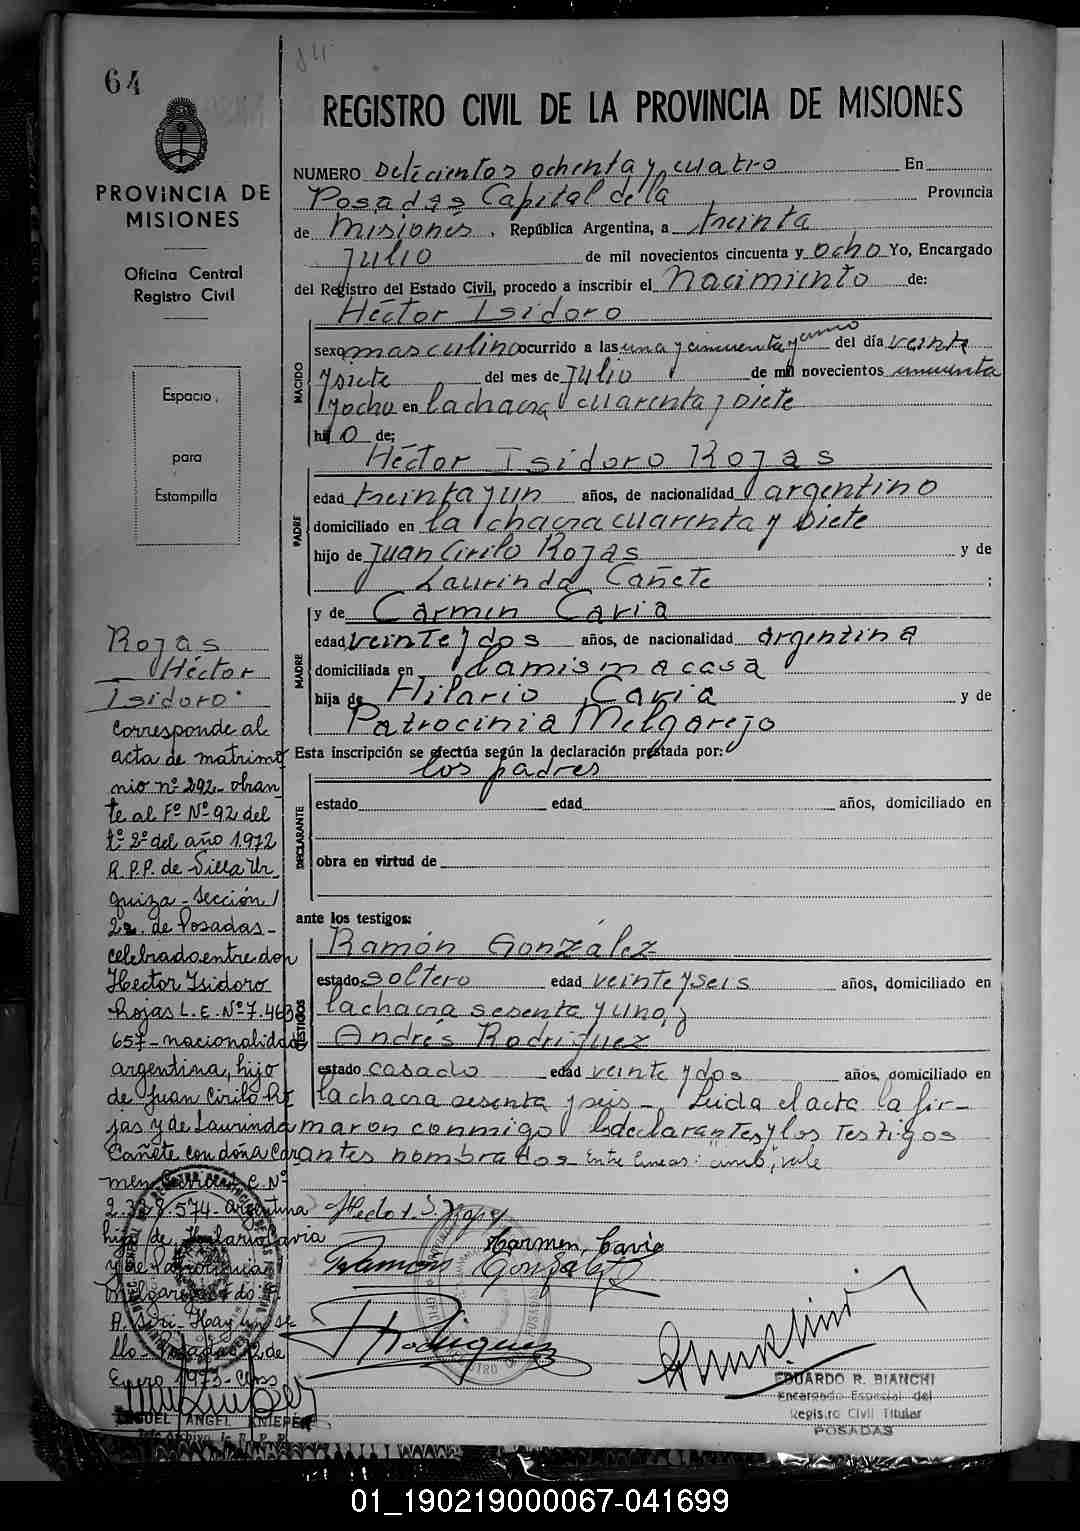 64
REGISTRO CIVIL DE LA PROVINCIA DE MISIONES
PROVINCIA DE
MISIONES
Oficina Central
Registro Civil
Espacio
para
Estampilla
NUMERO setecientos ochenta y cuatro En
Posadas Capital de la Provincia
de Misiones, República Argentina, a treinta
Julio de mil novecientos cincuenta y ocho Yo, Encargado
del Registro del Estado Civil, procedo a inscribir el Nacimiento de:
Héctor Isidoro
NACIDO
sexo masculino ocurrido a las una y cincuenta y cinco del día veinte
y siete del mes de Julio de mil novecientos cincuenta
y ocho en la chacra cuarenta y siete
hijo de:
Héctor Isidoro Rojas
PADRE
edad treinta y un años, de nacionalidad argentino
domiciliado en la chacra cuarenta y siete
hijo de Juan Cirilo Rojas y de
Laurinda Cañete ;
y de Carmen Cavia
MADRE
edad veinte y dos años, de nacionalidad argentina
domiciliada en la misma casa
hija de Hilario Cavia y de
Patrocinia Melgarejo
Esta inscripción se efectúa según la declaración prestada por:
los padres
DECLARANTE
estado edad años, domiciliado en
obra en virtud de
ante los testigos:
TESTIGOS
Ramón González
estado soltero edad veinte y seis años, domiciliado en
la chacra sesenta y uno, y
Andrés Rodríguez
estado casado edad veinte y dos años, domiciliado en
la chacra sesenta y seis - Leida el acta la fir-
maron conmigo los declarantes y los testigos
antes nombrados - Entre lineas: cinco, vale
Carmen Cavia
Ramon Gonzalez
Rodriguez
EDUARDO R. BIANCHI
Encargado Especial del
Registro Civil Titular
POSADAS
Rojas
Héctor
Isidoro.
Corresponde al
acta de matrimo
nio nº 292 - obran
te al Fº Nº 92 del
tº 2º del año 1972
R.P.P. de Villa Ur
quiza - Sección
2a. de Posadas -
celebrado entre don
Hector Isidoro
Rojas L. E. Nº 7.463
657 - nacionalidad
argentina, hijo
de Juan Cirilo Ro
jas y de Laurinda
Cañete con doña Car
men Cavia C Nº
574 - argentina
hija de Hilario Cavia
y de Patrocinia
Melgarejo
Hay un se
llo - Posadas 12 de
Enero 1973 -
MIGUEL ANGEL
01_190219000067-041699